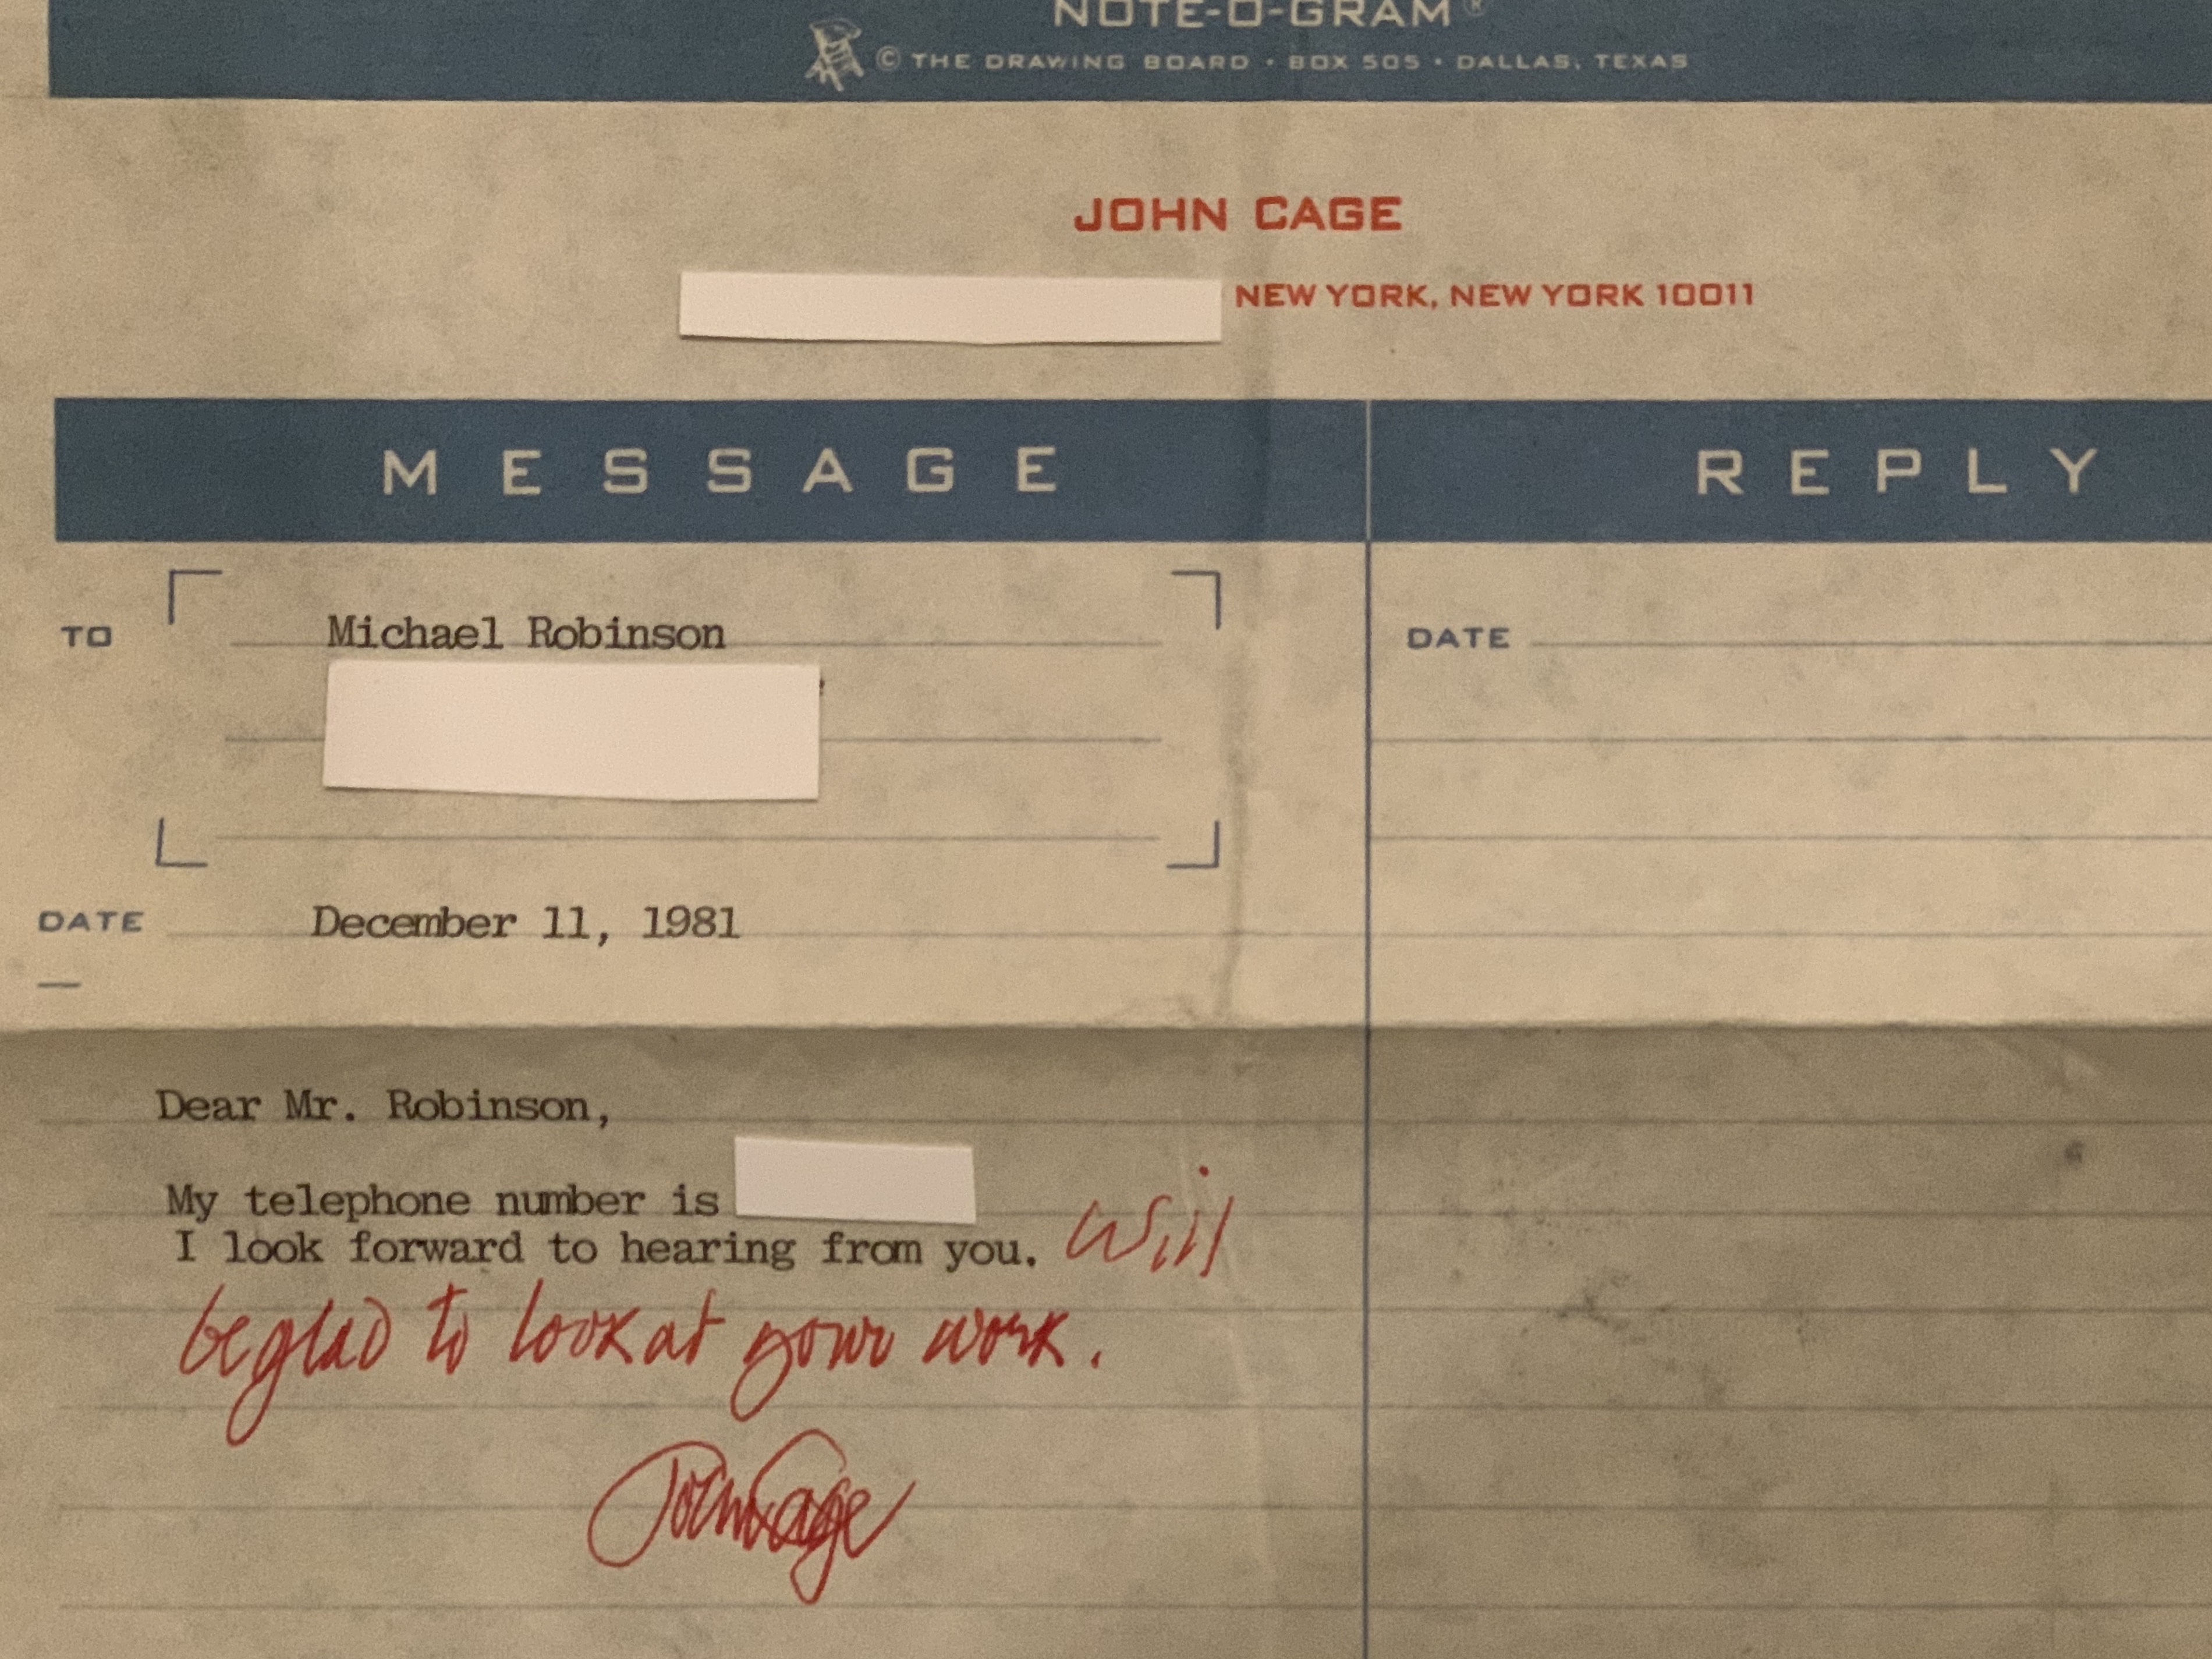 NOTE-O-GRAM®
© THE DRAWING BOARD • BOX 505 • DALLAS, TEXAS
JOHN CAGE
NEW YORK, NEW YORK 10011
MESSAGE
REPLY
TO Michael Robinson
DATE
DATE December 11, 1981
Dear Mr. Robinson,
My telephone number is
I look forward to hearing from you. Will
be glad to look at your work.
John Cage